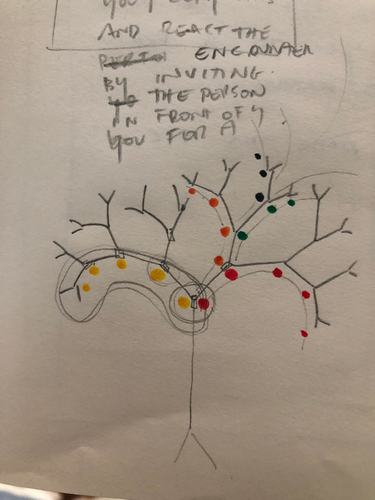 AND REACT THE
ENCOUNTER
BY INVITING
THE PERSON
IN FRONT OF
YOU FOR A